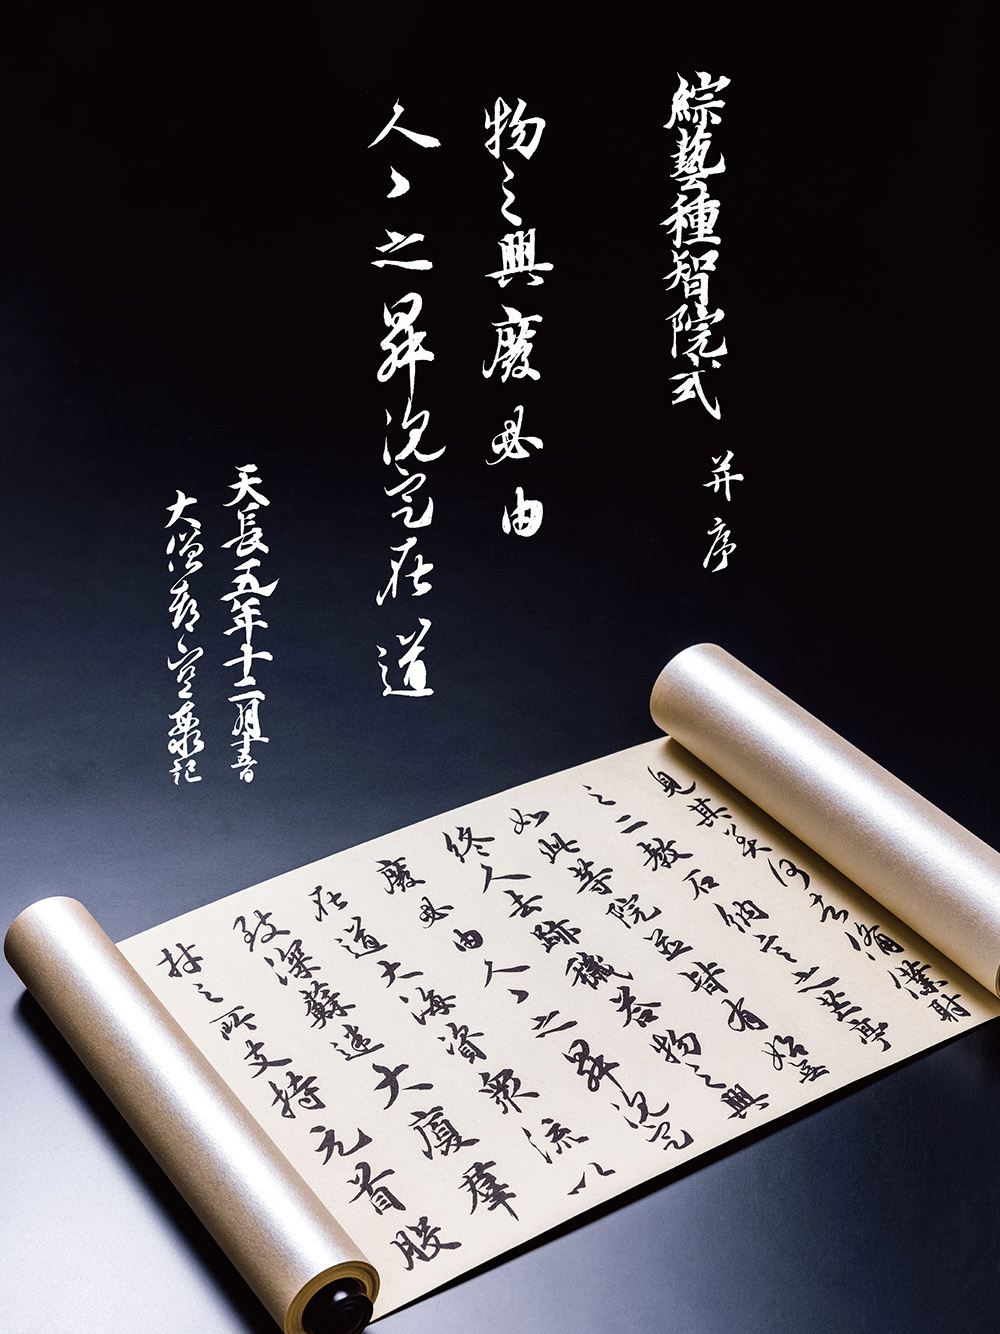 綜藝種智院式 并序
物之興廢必由
人々之昇沉定在道
天長五年十二月十五日
大僧都空海記
見其美何言備僕射
之二教石納言之芸亭
如此等院並皆有始無
終人去跡穢答物之興
廢必由人々之昇沉定
在道大海資衆流以
致深蘇迷大廈羣
材之所支持元首股